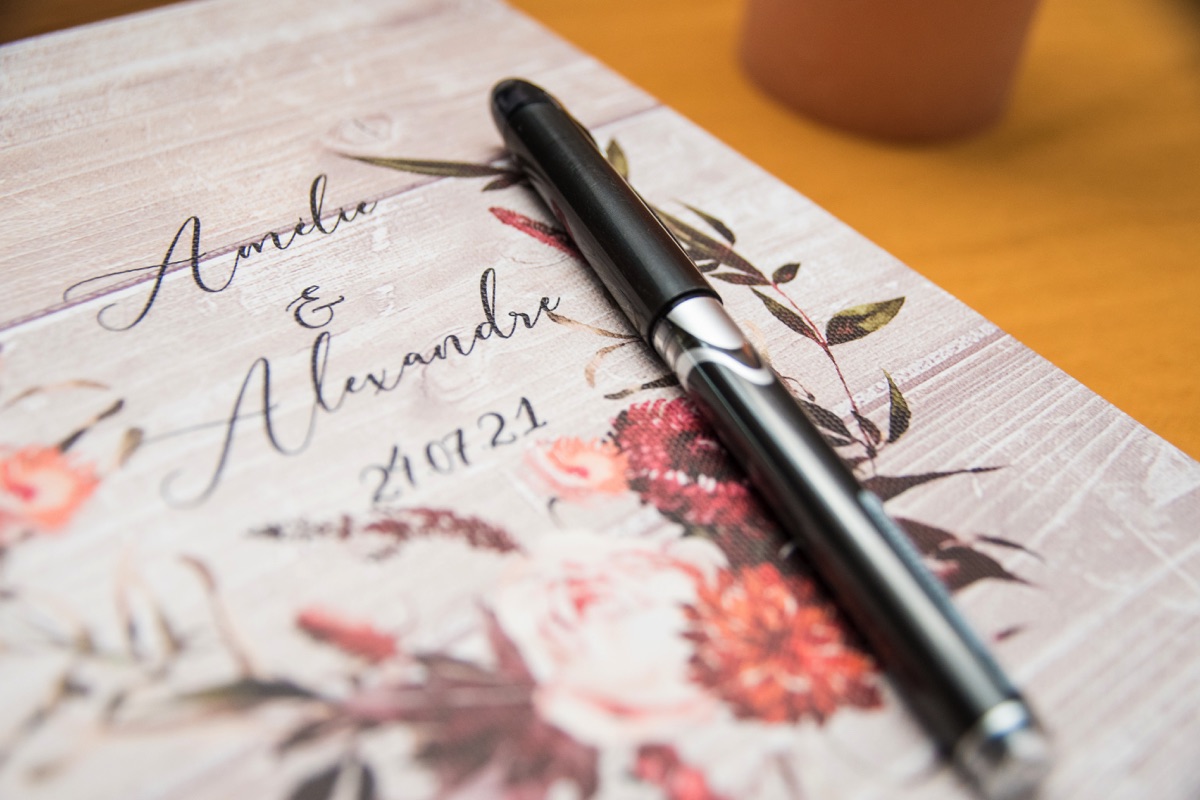 Amélie
&
Alexandre
24 07 21